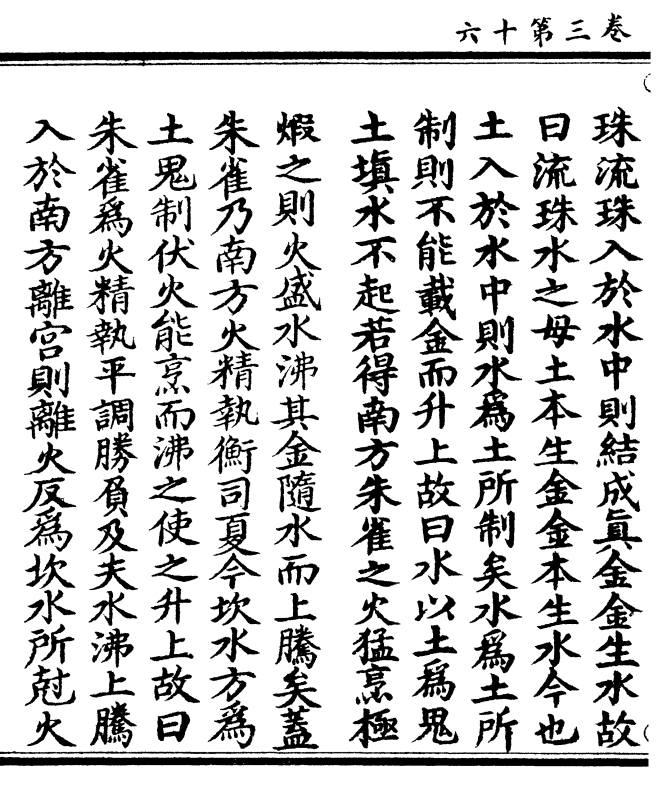 卷三第十六
珠流珠入於水中則結成眞金金生水故
曰流珠水之母土本生金金本生水今也
土入於水中則水爲土所制矣水爲土所
制則不能載金而升上故曰水以土爲鬼
土塡水不起若得南方朱雀之火猛烹極
煅之則火盛水沸其金隨水而上騰矣蓋
朱雀乃南方火精執衡司夏今坎水方爲
土鬼制伏火能烹而沸之使之升上故曰
朱雀爲火精執平調勝負及夫水沸上騰
入於南方離宮則離火反爲坎水所尅火